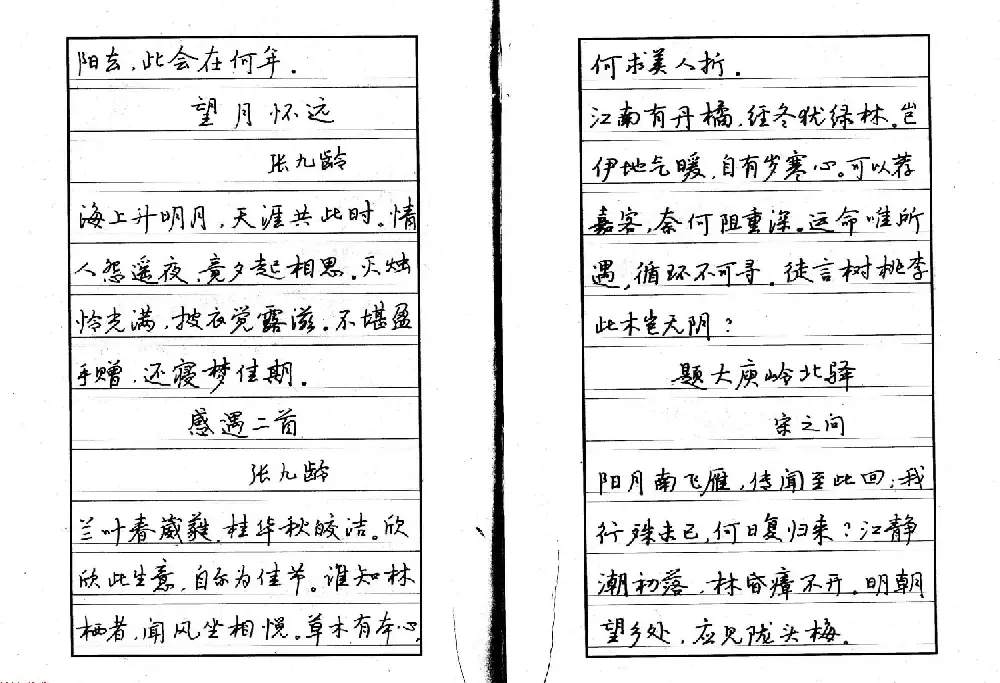 阳去，此会在何年．
望月怀远
张九龄
海上升明月，天涯共此时。情
人怨遥夜，竟夕起相思。灭烛
怜光满，披衣觉露滋。不堪盈
手赠，还寝梦佳期．
感遇二首
张九龄
兰叶春葳蕤，桂华秋皎洁。欣
欣此生意，自尔为佳节。谁知林
栖者，闻风坐相悦。草木有本心，
何求美人折．
江南有丹橘，经冬犹绿林。岂
伊地气暖，自有岁寒心。可以荐
嘉客，奈何阻重深。运命唯所
遇，循环不可寻．徒言树桃李
此木岂无阴？
题大庾岭北驿
宋之问
阳月南飞雁，传闻至此回；我
行殊未已，何日复归来？江静
潮初落，林昏瘴不开．明朝
望乡处，应见陇头梅。